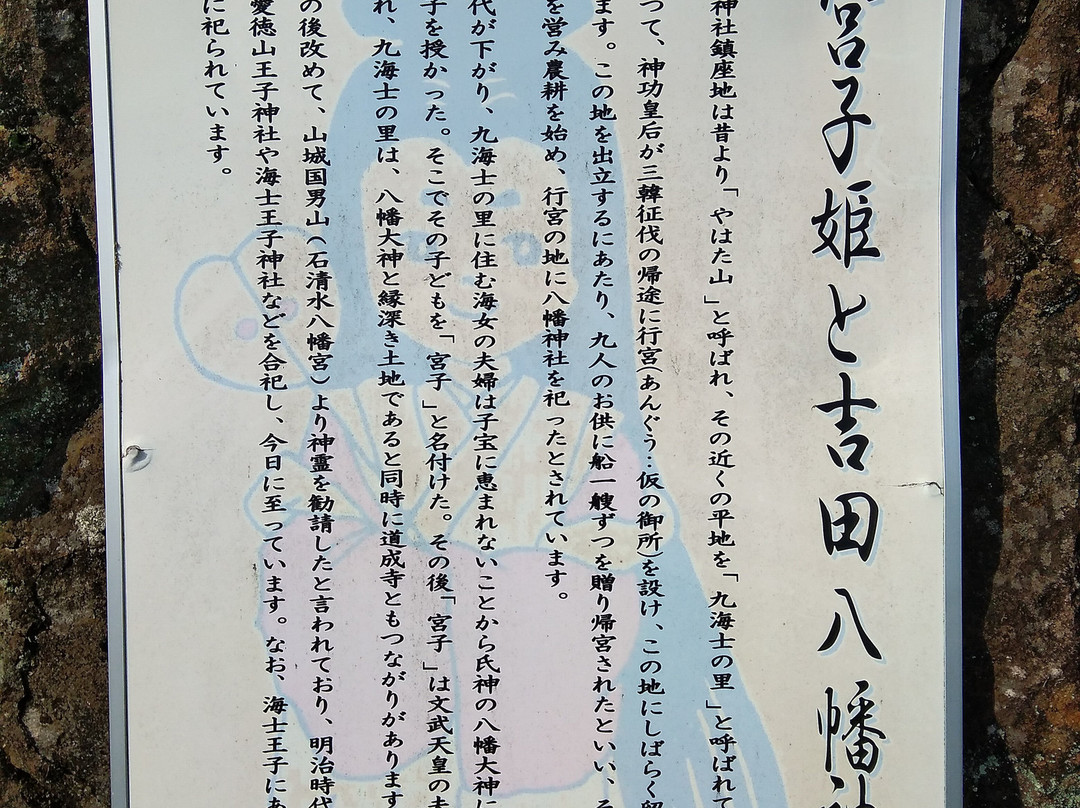 宮子姫と吉田八幡神
神社鎮座地は昔より「やはた山」と呼ばれ、その近くの平地を「九海士の里」と呼ばれて
つて、神功皇后が三韓征伐の帰途に行宮(あんぐう:仮の御所)を設け、この地にしばらく留
ます。この地を出立するにあたり、九人のお供に船一艘ずつを贈り帰宮されたといい、そ
を営み農耕を始め、行宮の地に八幡神社を祀ったとされています。
代が下がり、九海士の里に住む海女の夫婦は子宝に恵まれないことから氏神の八幡大神に
子を授かった。そこでその子どもを「宮子」と名付けた。その後「宮子」は文武天皇の夫
れ、九海士の里は、八幡大神と縁深き土地であると同時に道成寺ともつながりがあります
の後改めて、山城国男山(石清水八幡宮)より神霊を勧請したと言われており、明治時代
愛徳山王子神社や海士王子神社などを合祀し、今日に至っています。なお、海士王子にあ
に祀られています。